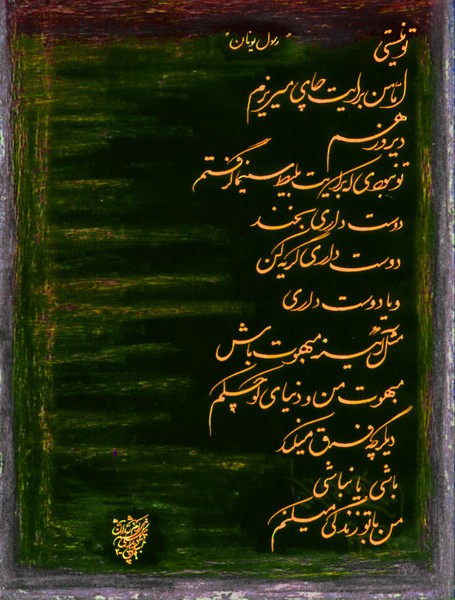 تو نیستی
"رسول یونان"
امّا من برایت چای میریزم
دیروز هم
نبودی که برایت بلیط سینما گرفتم
دوست داری بخند
دوست داری گریه کن
و یا دوست داری
مثل آینه مبهوت باش
مبهوت من و دنیای کوچکم
دیگر چه فرق میکند
باشی یا نباشی
من با تو زندگی میکنم